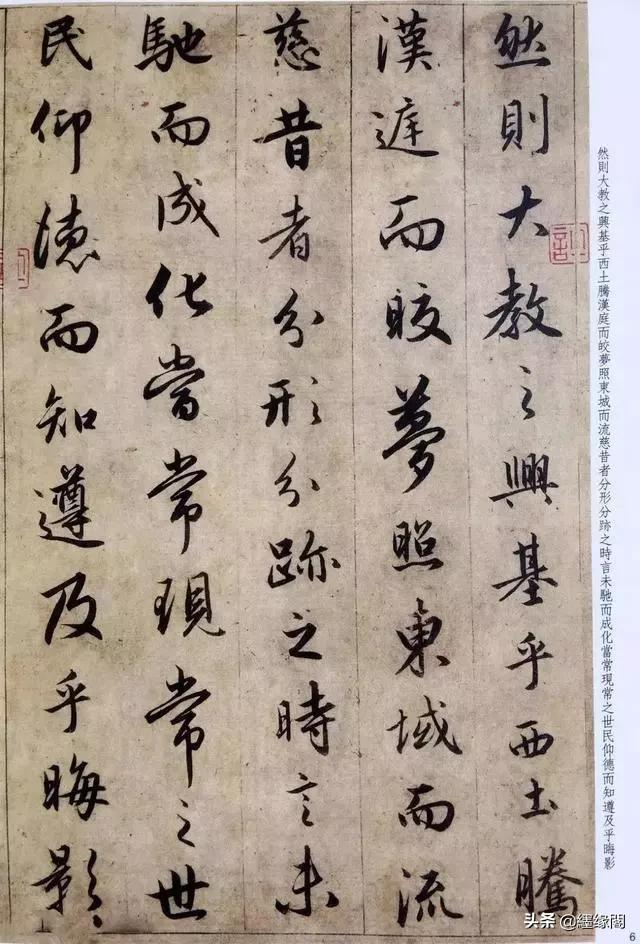 然則大教之興基乎西土騰漢庭而皎夢照東域而流慈昔者分形分跡之時言未馳而成化當常現常之世民仰德而知遵及乎晦影
然則大教之興基乎西土騰
漢庭而皎夢照東域而流
慈昔者分形分跡之時言未
馳而成化當常現常之世
民仰德而知遵及乎晦影
6
头条 @缘閣